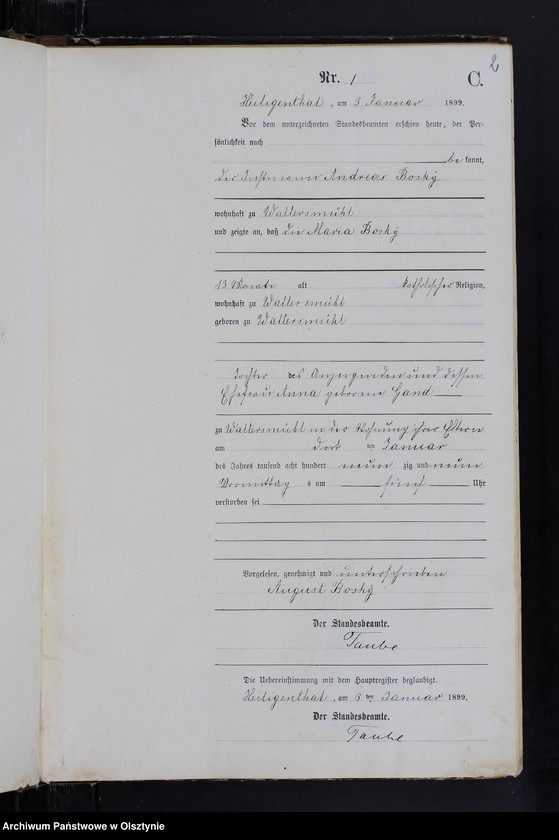 2
Nr. 1
C.
Heiligenthal, am 3 Januar 1899.
Vor dem unterzeichneten Standesbeamten erschien heute, der Per-
sönlichkeit nach
be kannt,
der Instmann Andreas Bosky
wohnhaft zu Waltersmühl
und zeigte an, daß die Maria Bosky
13 Monate alt katholischer Religion,
wohnhaft zu Waltersmühl
geboren zu Waltersmühl
Tochter des Anzeigenden und dessen
Ehefrau Anna geborene Gand
zu Waltersmühl in der Wohnung ihrer Eltern
am ten Januar
des Jahres tausend acht hundert neun zig und neun
Vormittag s um fünf Uhr
verstorben sei
Vorgelesen, genehmigt und unterschrieben
August Bosky
Der Standesbeamte.
Taube
Die Uebereinstimmung mit dem Hauptregister beglaubigt.
Heiligenthal, am 3 ten Januar 1899.
Der Standesbeamte.
Taube
Archiwum Państwowe w Olsztynie